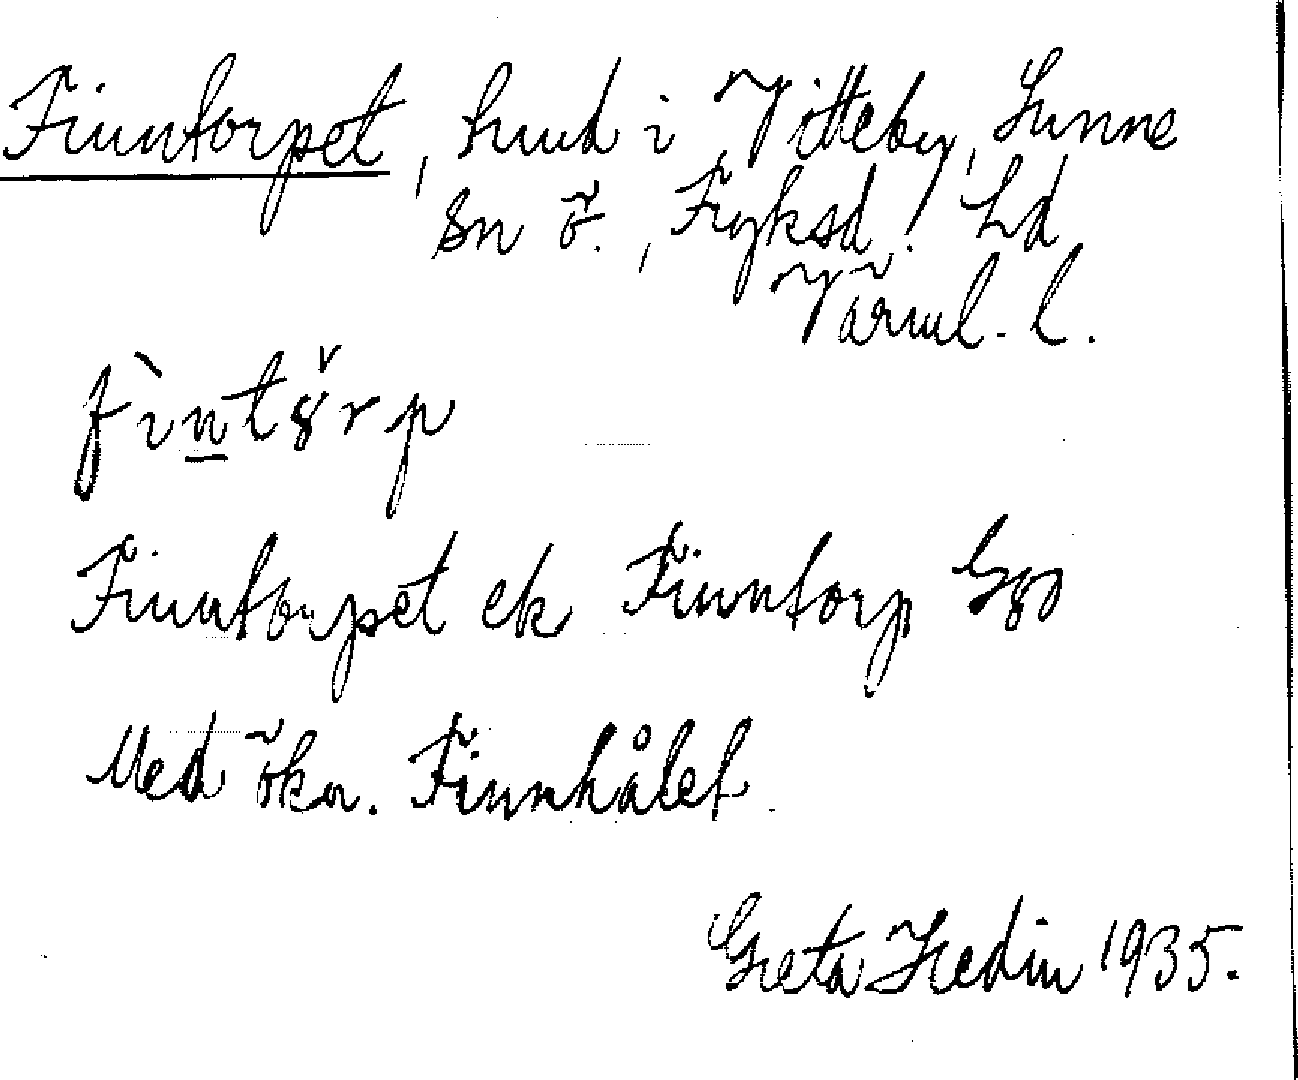 Finntorpet, hmd i Vitteby, Sunne
sn ö., Fryksd. hd
Värml. l.
fìntŏrp
Finntorpet ek Finntorp
Med ökn. Finnhålet.
Greta Hedin 1935.